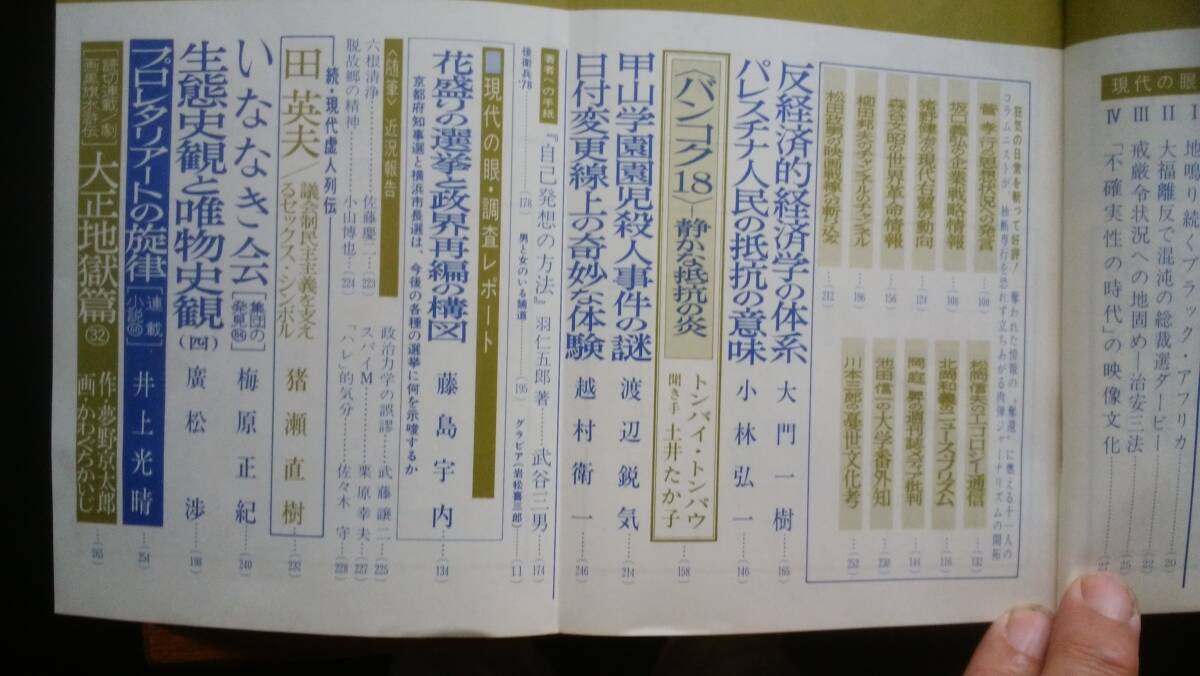 現代の眼
地鳴り続くブラック・アフリカ
II 大福離反で混沌の総裁選ダービー……(20)
III 戒厳令状況への地固め—治安三法……(22)
IV 「不確実性の時代」の映像文化
(25)
(27)
狂気の日常を斬って好評!
奪われた情報の〝奪還〟に燃える十一人の
コラムニストが、独断専行を恐れず立ちあがる肉弾ジャーナリズムの開拓
菅孝行の思想状況への発言……(100)
坂口義弘の企業戦略情報……(108)
猪野健治の現代右翼の動向……(124)
森詠の明・の世界革命情報……(156)
柳田邦夫のチャンネルのチャンネル……(196)
松田政男の映画戦線への斬り込み……(212)
松岡信夫のエコロジー通信……(132)
北岡和義のニュース・コープリズム……(116)
岡庭昇の週刊誌メディア批判……(144)
池田信一の大学番外知……(230)
川本三郎の憂世文化考……(252)
反経済的経済学の体系 大門一樹……(165)
パレスチナ人民の抵抗の意味 小林弘一……(146)
〈バンコク18〉—静かな抵抗の炎
トンバイ・トンパウ
聞き手 土井たか子……(158)
甲山学園園児殺人事件の謎 渡辺鋭気……(214)
日付変更線上の奇妙な体験 越村衛一……(246)
著者への手紙 『自己発想の方法』羽仁五郎著……武谷三男……(174)
後衛兵'78……(178) 男と女のいる舗道……(195) グラビア(岩松喜三郎)(11)
■現代の眼・調査レポート
花盛りの選挙と政界再編の構図 藤島宇内……(134)
京都府知事選と横浜市長選は、今後の各種の選挙に何を示唆するか
〈随筆〉近況報告
政治力学の誤謬……武藤譲二……(225)
六根清浄……佐藤慶二……(223)
スパイM……栗原幸夫……(227)
脱故郷の精神……小山博也……(224)
「ハレ」的気分……佐々木守……(228)
続・現代虚人列伝
田英夫/議会制民主主義を支えるセックス・シンボル 猪瀬直樹……(232)
いななき会[集団の発見84] 梅原正紀……(240)
生態史観と唯物史観(四) 廣松渉……(198)
プロレタリアートの旋律[連載小説] 井上光晴……(254)
[読切連載/劇画黒旗水滸伝]大正地獄篇㉜ 作・夢野京太郎 画・かわぐちかいじ……(265)